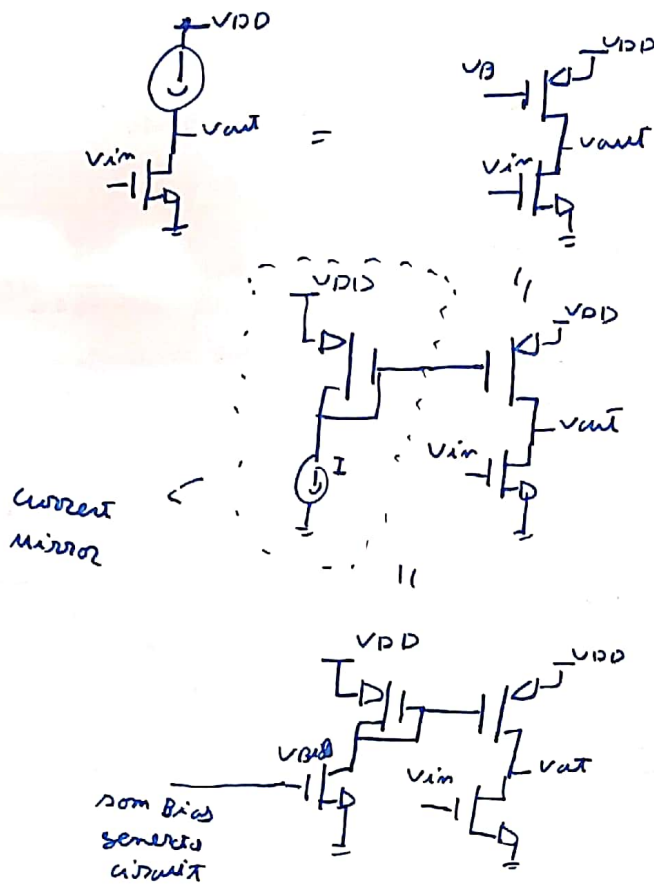 VDD
Vout
Vin
=
VB
VDD
Vout
Vin
VDD
VDD
I
Vin
Vout
current
mirror
VDD
VDD
VBias
Vin
Vout
som Bias
generito
circuit